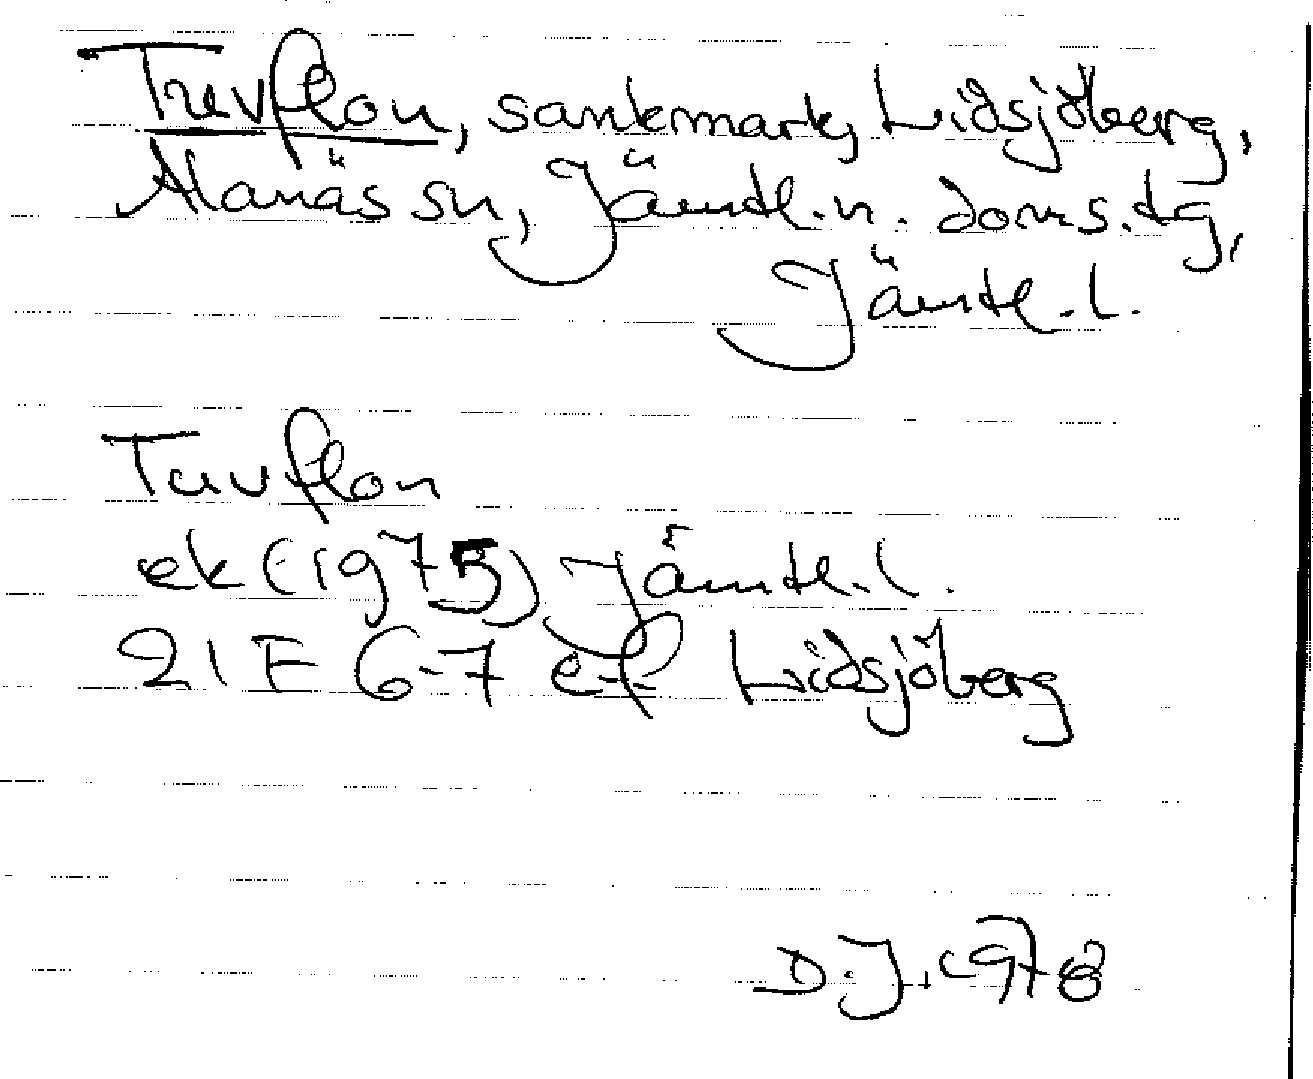 Tuvflon, sankmark, Lidsjöberg,
Alanäs sn, Jämtl. n. doms. tg,
Jämtl. l.
Tuvflon
ek (1975) Jämtl. l.
21 F 6-7 e-f Lidsjöberg
D.J. 1978